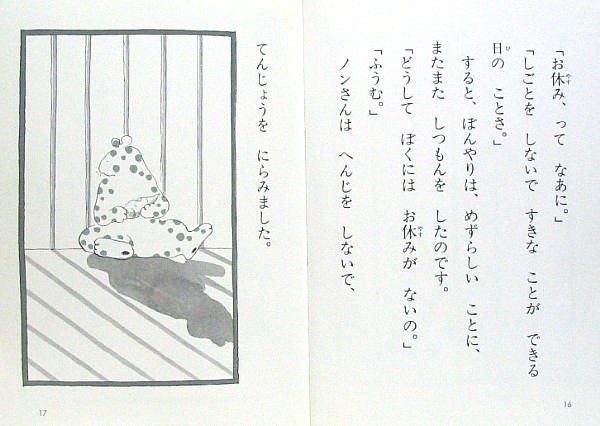 「お休み、って なあに。」
「しごとを しないで すきな ことが できる
日の ことさ。」
すると、ぼんやりは、めずらしい ことに、
またまた しつもんを したのです。
「どうして ぼくには お休みが ないの。」
「ふうむ。」
ノンさんは へんじを しないで、
16
てんじょうを にらみました。
17